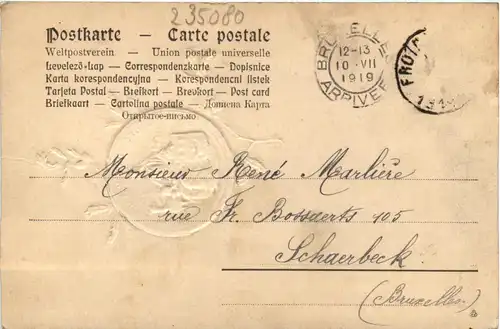 235080
Postkarte — Carte postale
Weltpostverein — Union postale universelle
Levelező-Lap — Correspondenzkarte — Dopisnice
Karta korespondencyjna — Korespondencni listek
Tarjeta Postal — Briefkort — Brevkort — Post card
Briefkaart — Cartolina postale — Дописна Карта
Открытое письмо
BRUXELLES
12-13
10·VII
1919
ARRIVEE
Monsieur René Marlière
rue Fr. Bossaerts 105
Schaerbeck
(Bruxelles)